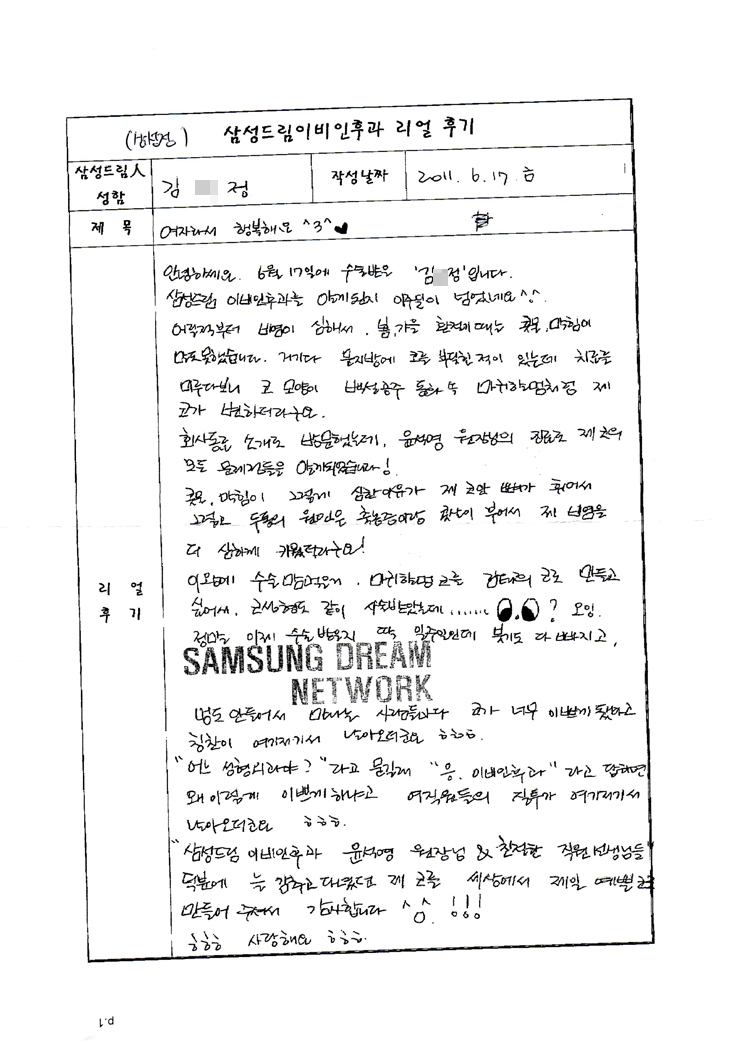 (비염) 삼성드림이비인후과 리얼 후기
삼성드림人 성함
김 정
작성날짜
2011. 6. 17 금
제 목
여자라서 행복해요 ^3^♥
리 얼 후 기
안녕하세요. 6월 17일에 수술받은 '김 정'입니다.
삼성드림 이비인후과를 알게된지 이주일이 넘었네요^^.
어릴적부터 비염이 심해서, 봄,가을 환절기때는 콧물,막힘이
말도못했습니다. 거기다 문지방에 코를 부딪친적이 있는데 치료를
미루다보니 코 모양이 백설공주 동화 속 마귀할멈처럼 제
코가 변하더라구요.
회사동료 소개로 방문했는데, 윤석영 원장님의 진료로 제 코의
모든 문제점들을 알게되었습니다!
콧물, 막힘이 그렇게 심한이유가 제 코안 뼈가 휘어서
그렇고 두통의 원인은 축농증이랑 콧살이 부어서 제 비염을
더 심하게 키웠더라구요!
이왕에 수술 맘먹은거, 마귀할멈 코를 코로 만들고
싶어서, 코성형도 같이 수술받았는데...... ? 오잉.
정말 이제 수술받은지 딱 일주일인데 붓기도 다 빠지고,
SAMSUNG DREAM
NETWORK
멍도 안들어서 만나는 사람들마다 코가 너무 이쁘게 됐다고
칭찬이 여기저기서 날아오더군요 ㅎㅎㅎ.
"어느 성형외과야?"라고 물길래 "응. 이비인후과"라고 답하면
왜이렇게 이쁘게하냐고 여직원들의 질투가 여기저기서
날아오더군요 ㅎㅎㅎ.
"삼성드림 이비인후과 윤석영 원장님 & 친절한 직원선생님들"
덕분에 늘 감추고 다녔던 제 코를 세상에서 제일 예쁜 코로
만들어 주셔서 감사합니다 ^^ !!!
ㅎㅎㅎ 사랑해요 ㅎㅎㅎ.
p.1